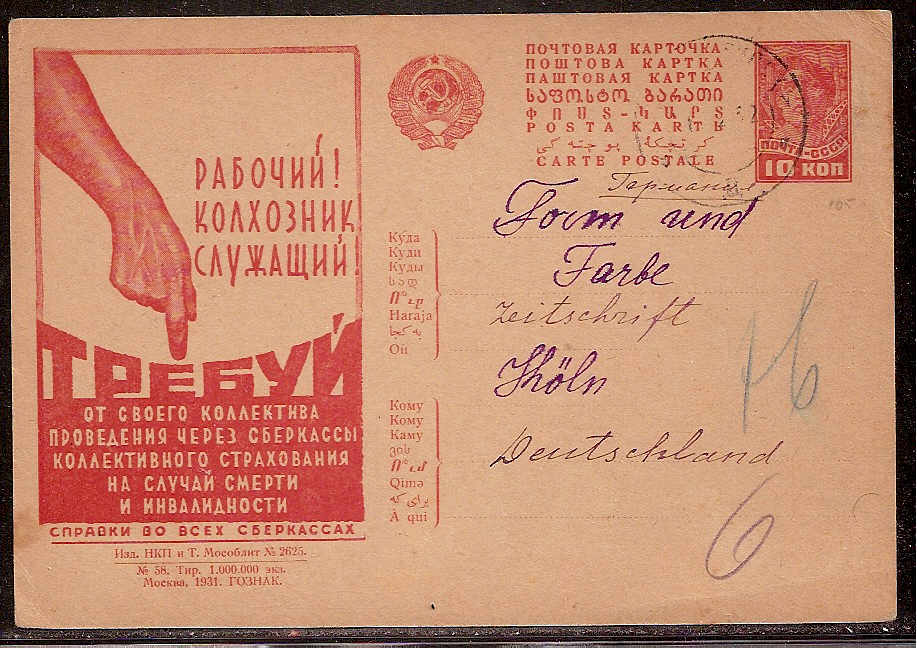 РАБОЧИЙ!
КОЛХОЗНИК,
СЛУЖАЩИЙ!
ТРЕБУЙ
ОТ СВОЕГО КОЛЛЕКТИВА
ПРОВЕДЕНИЯ ЧЕРЕЗ СБЕРКАССЫ
КОЛЛЕКТИВНОГО СТРАХОВАНИЯ
НА СЛУЧАЙ СМЕРТИ
И ИНВАЛИДНОСТИ
СПРАВКИ ВО ВСЕХ СБЕРКАССАХ
Изд. НКП и Т. Мособлит № 2625.
№ 58. Тир. 1.000.000 экз.
Москва, 1931. ГОЗНАК.
ПОЧТОВАЯ КАРТОЧКА
ПОШТОВА КАРТКА
ПАШТОВАЯ КАРТКА
ᲡᲐᲤᲝᲡᲢᲝ ᲑᲐᲠᲐᲗᲘ
ՓՈՍՏ-ՔԱՐՏ
POSTA KARTЬ
CARTE POSTALE
ПОЧТА-СССР
10 КОП
Германия
Form und
Farbe
Zeitschrift
Köln
Deutschland
Куда
Куди
Куды
სად
Haraja
Où
Кому
Кому
Каму
ვის
Qimə
À qui
16
6
105